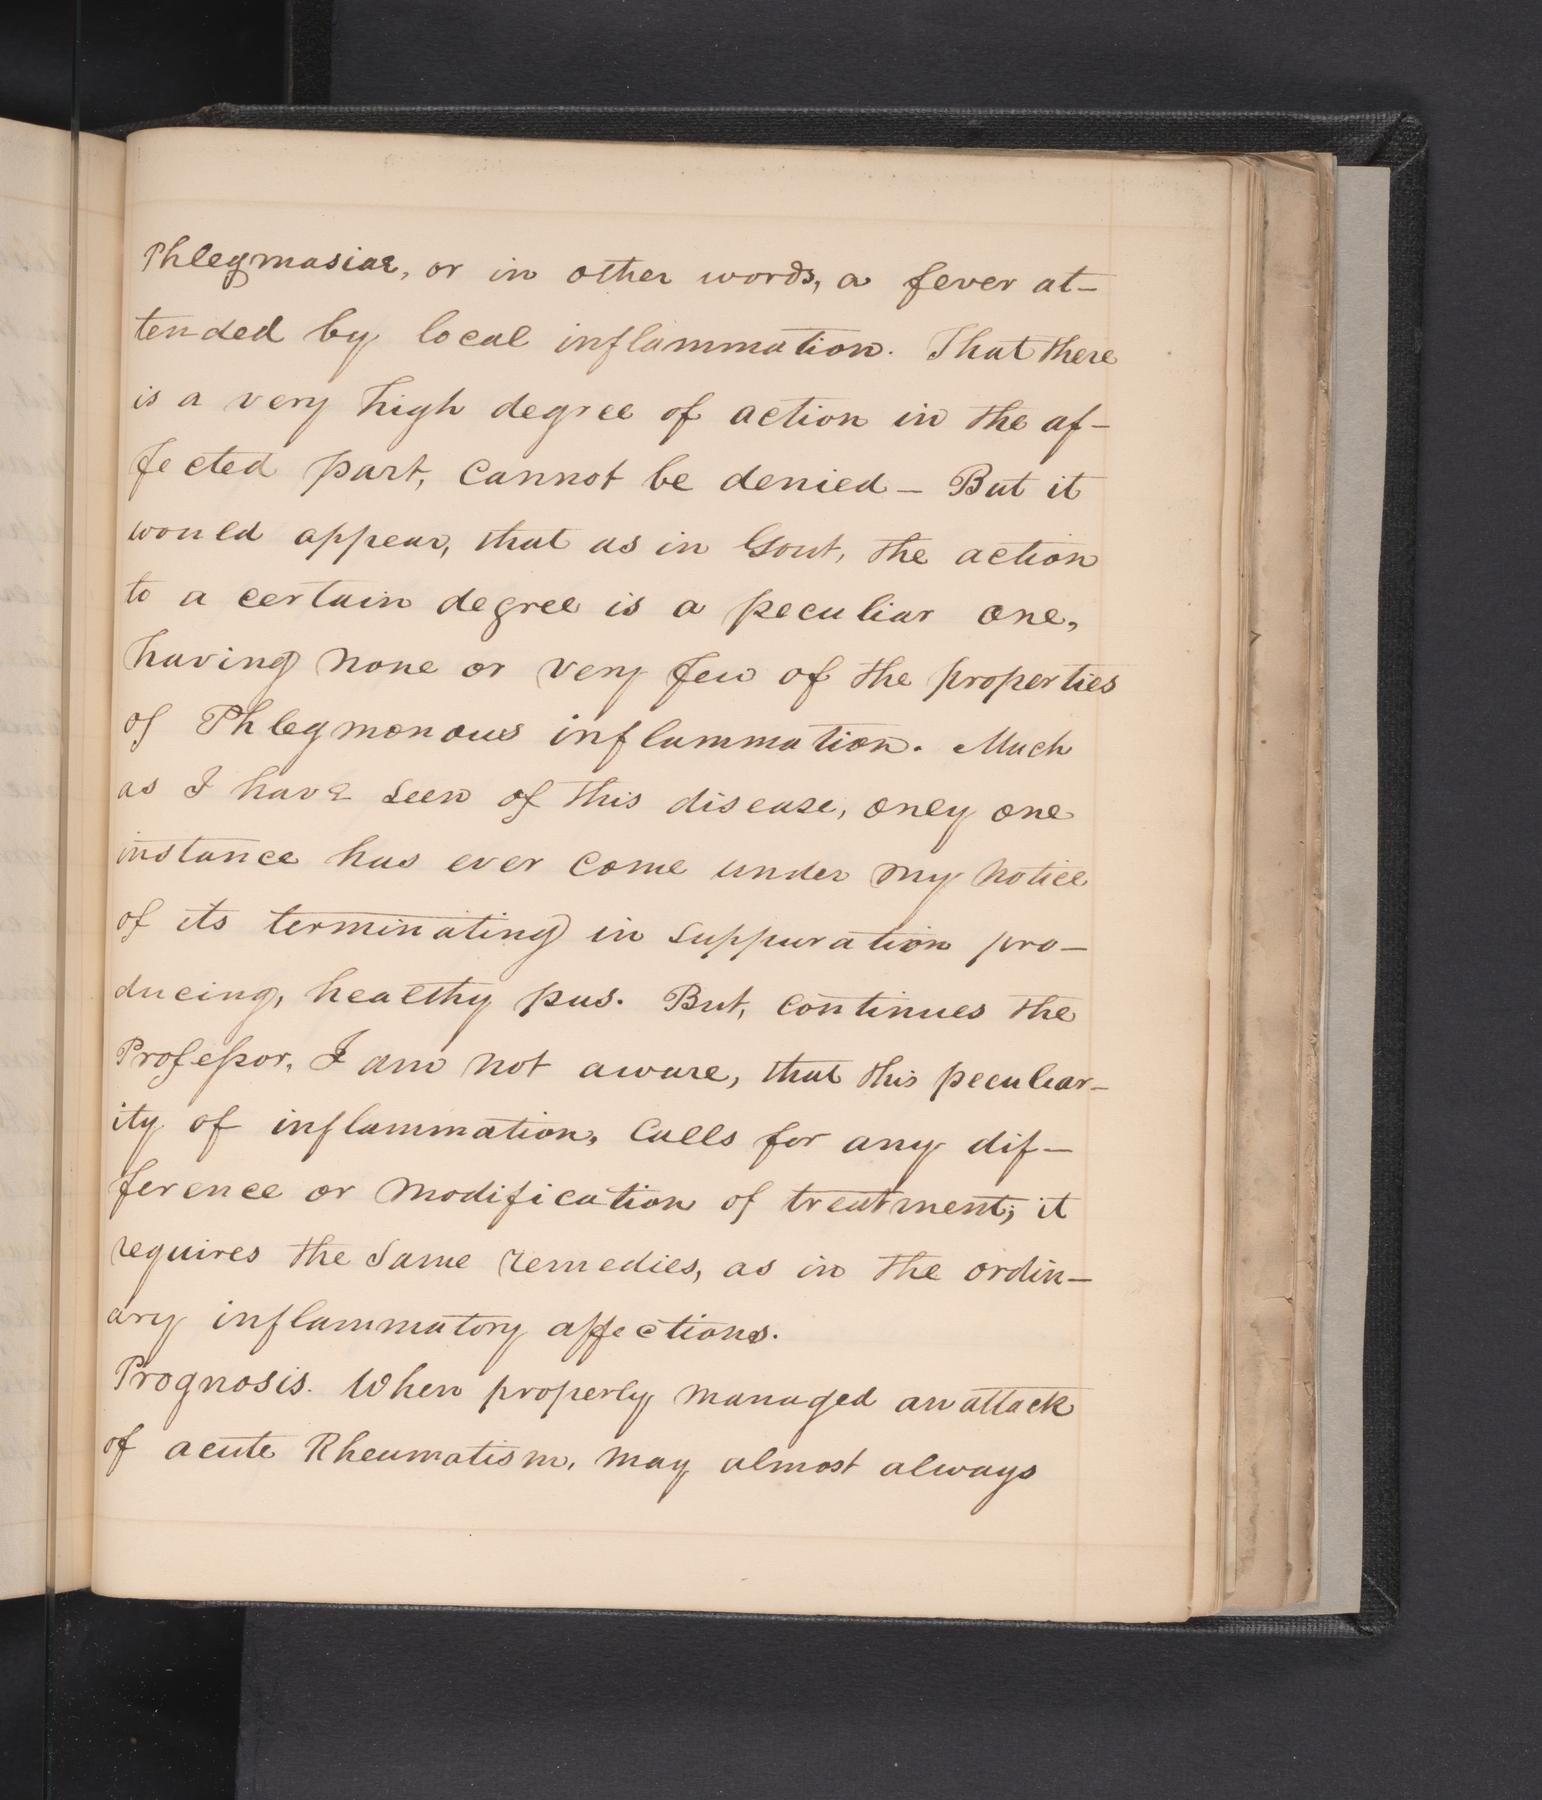 Phlegmasiae, or in other words, a fever at-
tended by local inflammation. That there
is a very high degree of action in the af-
fected part, cannot be denied - But it
would appear, that as in Gout, the action
to a certain degree is a peculiar one,
having none or very few of the properties
of Phlegmonous inflammation. Much
as I have seen of this disease, only one
instance has ever come under my notice
of its terminating in suppuration pro-
ducing, healthy pus. But, continues the
Profeſsor, I am not aware, that this peculiar-
ity of inflammation, calls for any dif-
ference or modification of treatment; it
requires the same remedies, as in the ordin-
ary inflammatory affections.
Prognosis. When properly managed an attack
of acute Rheumatism, may almost always